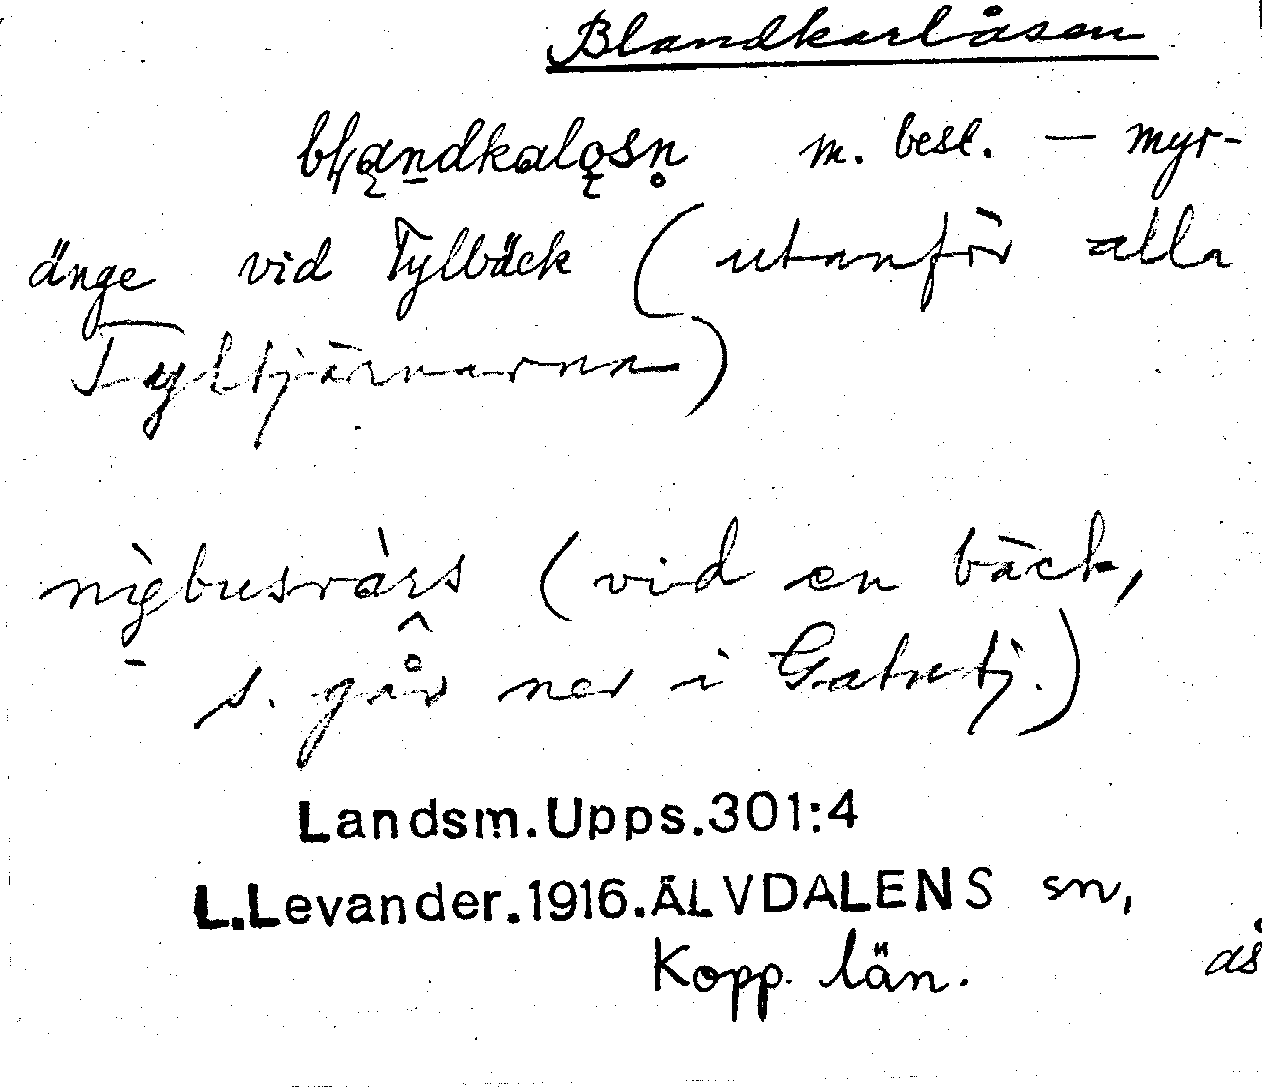 Blandkarlåsen
bḷąndkalǫsn̥ m. best. — myr-
änge vid Tylbäck (utanför alla
Tyltjärnarna)
(vid en bäck,
s. går ner i
Landsm.Upps.301:4
L.Levander.1916.ÄLVDALENS sn,
Kopp. län. ås